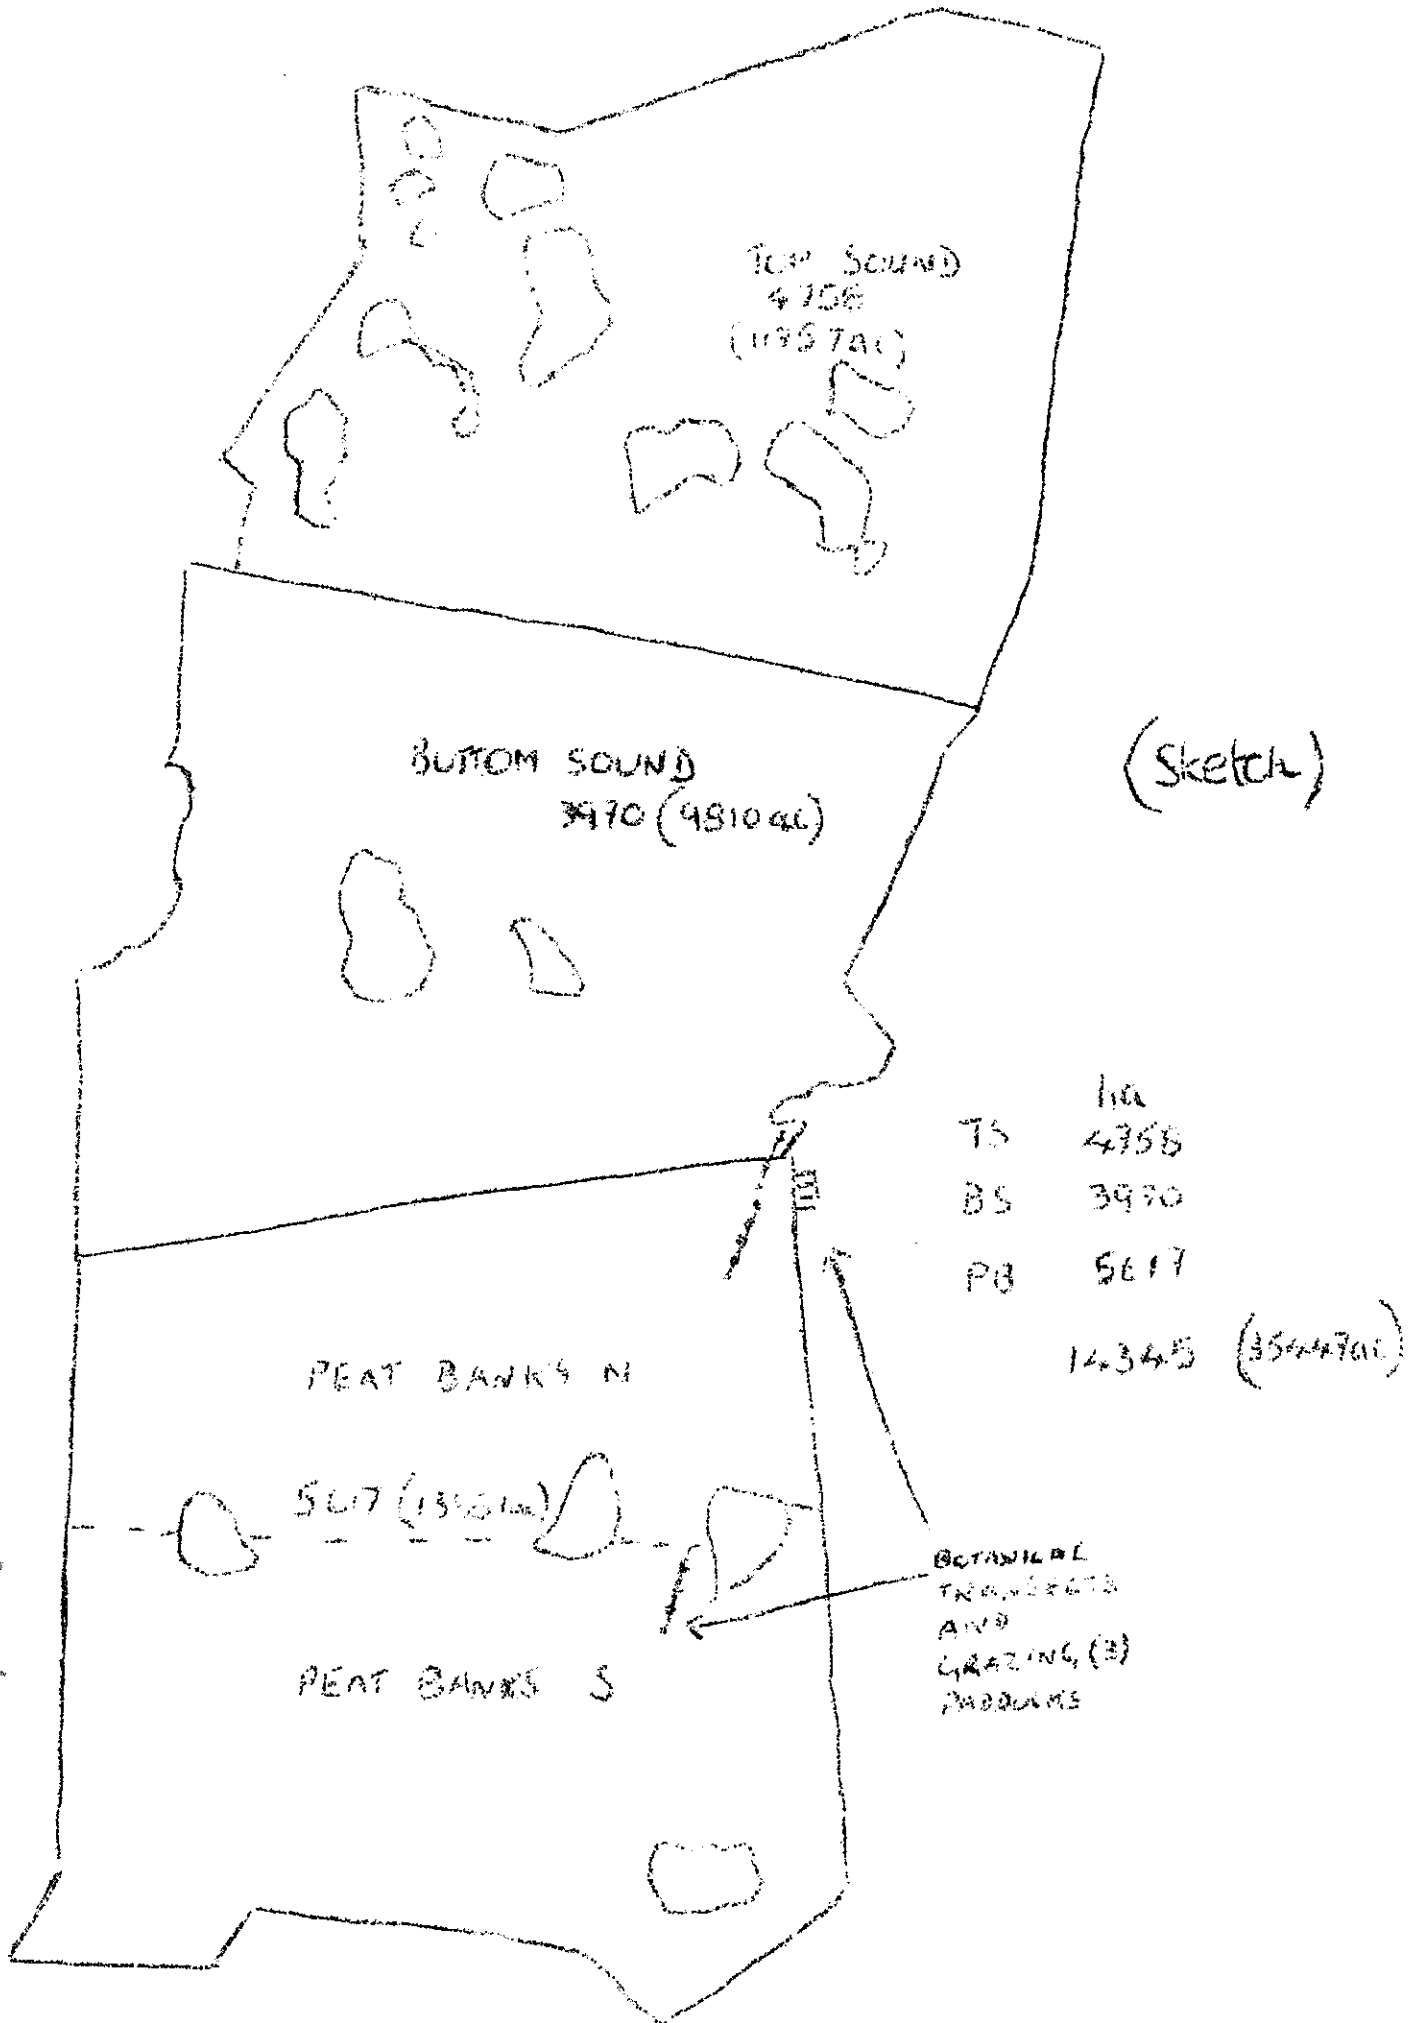 TOP SOUND
4758
(11757ac)
BOTTOM SOUND
3970 (9810ac)
(Sketch)
ha
TS 4758
BS 3970
PB 5617
14345 (35447ac)
PEAT BANKS N
5617
PEAT BANKS S
BOTANICAL
TRANSECTS
AND
GRAZING (3)
PADDOCKS